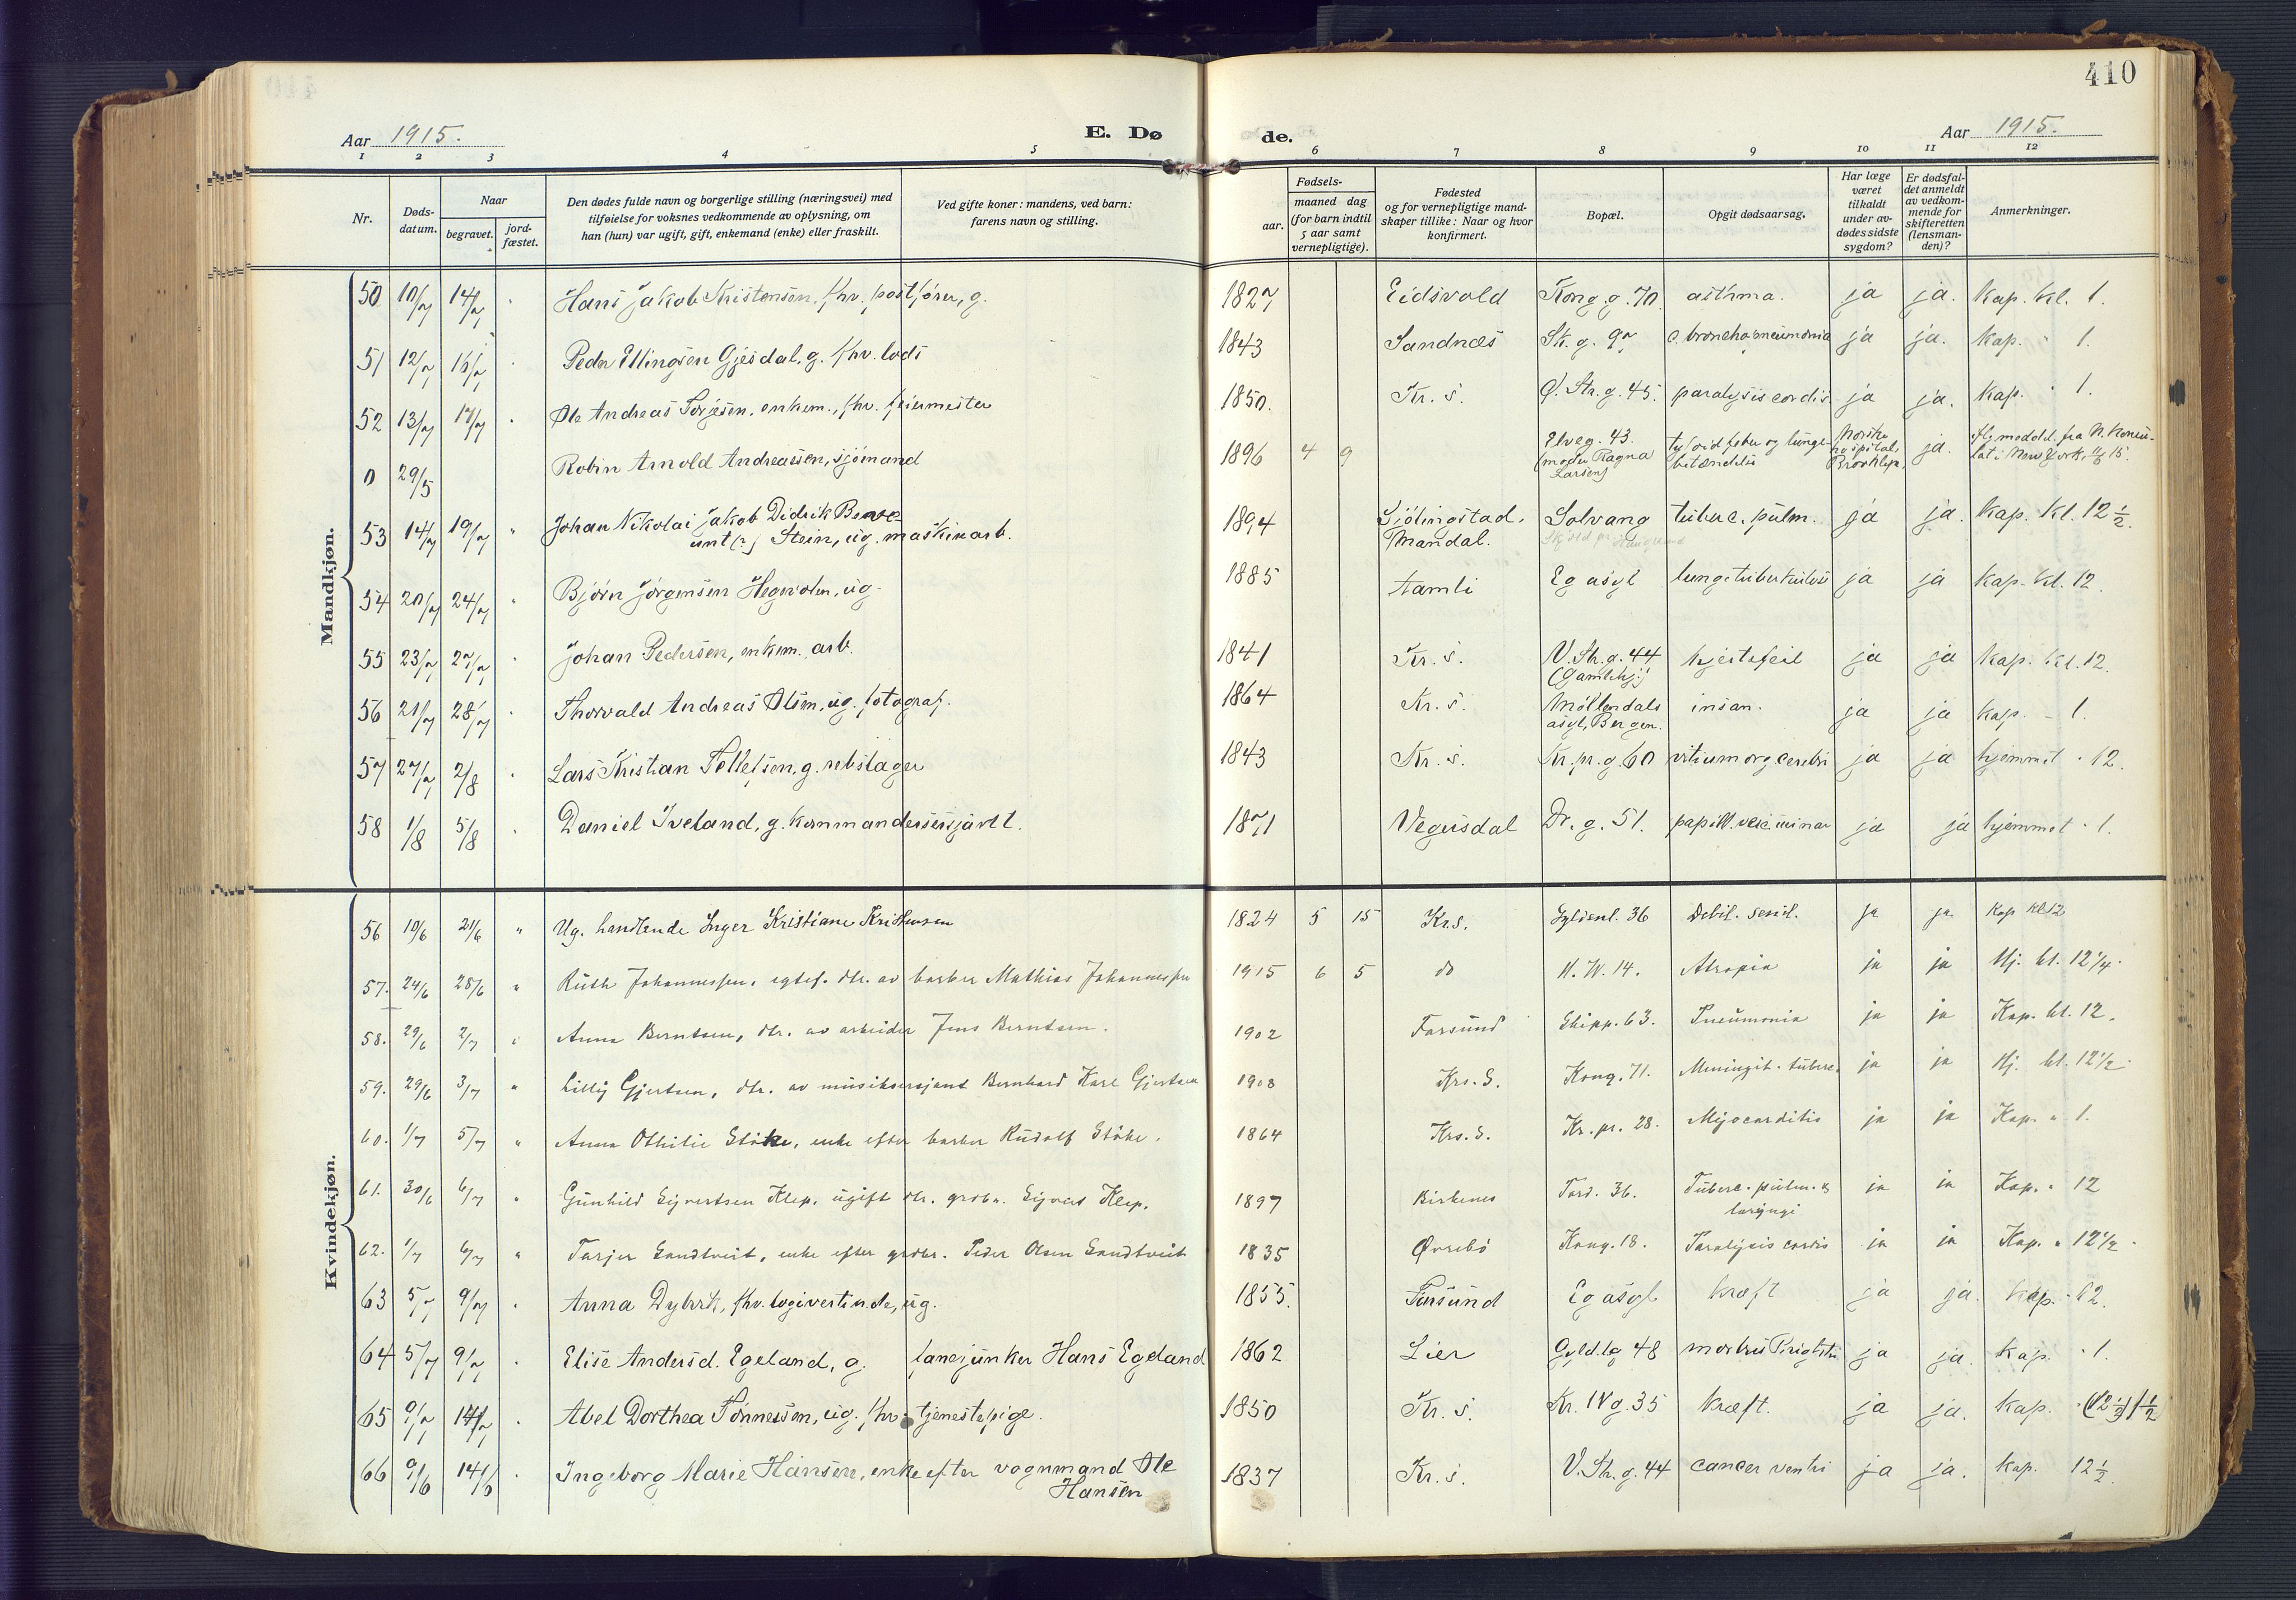 410
Aar 1915.
E. Dø
de.
Aar 1915.
1 2 3 4 5 6 7 8 9 10 11 12
Nr.
Døds-
datum.
Naar
begravet.
jord-
fæstet.
Den dødes fulde navn og borgerlige stilling (næringsvei) med
tilføielse for voksnes vedkommende av oplysning, om
han (hun) var ugift, gift, enkemand (enke) eller fraskilt.
Ved gifte koner: mandens, ved barn:
farens navn og stilling.
Fødsels-
aar.
maaned dag
(for barn indtil
5 aar samt
vernepligtige).
Fødested
og for vernepligtige mand-
skaper tillike: Naar og hvor
konfirmert.
Bopæl.
Opgit dødsaarsag.
Har læge
været
tilkaldt
under av-
dødes sidste
sygdom?
Er dødsfal-
det anmeldt
av vedkom-
mende for
skifteretten
(lensman-
den)?
Anmerkninger.
Mandkjøn.
50 10/7 14/7 " Hans Jakob Kristensen, fhv. postfører, g. 1827 Eidsvold Kong. g. 70 asthma. ja ja. Kap. kl. 1.
51 12/7 16/7 " Peder Ellingsen Gjesdal, g. fhv. lods 1843 Sandnæs Sk. g. 97 c. bronchopneumonia ja ja. Kap. " 1.
52 13/7 17/7 " Ole Andreas Torjesen, enkem., fhv. feiermester 1850. Kr. s. Ø. Str. g. 45. paralysis cordis ja ja. Kap. " 1.
0 29/5 Robin Arnold Andreassen, sjömand 1896 4 9 Elveg. 43. (moder Ragna Larsen) tyfoidfeber og lunge-betændelse Norske hospital, Brooklyn ja. New York, 15.
53 14/7 19/7 " Johan Nikolai Jakob Didrik
(?) Stein, ug. maskinarb. 1894 Sjölingstad, Mandal. Solvang tuberc. pulm. ja ja. Kap. kl. 12 1/2.
54 20/7 24/7 " Bjørn Jørgensen ug. 1885 Aamli Eg asyl lungetuberkulose ja ja Kap. kl. 12.
55 23/7 27/7 " Johan Pedersen, enkem. arb. 1841 Kr. s. V. Str. g. 44 (Gamlehj.) hjertefeil ja ja Kap. kl. 12.
56 21/7 28/7 " Thorvald Andreas Olsen, ug. fotograf. 1864 Kr. s. Möllendals asyl, Bergen. insan. ja ja Kap. - 1.
57 27/7 2/8 " Lars Kristian Tellefsen, g. rebslager 1843 Kr. s. Kr. pr. g. 60 vitium org. cerebri ja ja hjemmet " 12.
58 1/8 5/8 " Daniel Iveland, g. kommandersersjant. 1871 Vegusdal Dr. g. 51. ja ja hjemmet " 1.
Kvindekjøn.
56 10/6 21/6 " Ug. handlende Inger Kristiane Kristensen 1824 5 15 Kr.s. Gyldenl. 36 Debil. senil. ja ja Kap kl 12
57. 24/6 28/6 " Ruth Johannessen, egtef. dtr. av barber Mathias Johannessen 1915 6 5 do H. W. 14. Atropia ja ja Hj. kl. 12 1/4.
58. 29/6 2/7 " Anna Berntsen, dtr. av arbeider Jens Berntsen. 1902 Farsund Skipp. 63. Pneumonia ja ja Kap. kl. 12.
59. 29/6 3/7 " Lilly Gjertsen, dtr. av musiksersjant Bernhard Karl Gjertsen 1908 Krs. S. Kong. 71. Meningit. tuberc. ja ja Hj. kl. 12 1/2.
60. 1/7 5/7 " Anna Othilie Stöke, enke efter barber Rudolf Stöke. 1864 Krs. S. Kr. pr. 28. Myocarditis ja ja Kap. " 1.
61. 30/6 6/7 " Gunhild Sigvartsen Klep, ugift dtr. grdbr. Sigvart Klep. 1897 Birkenes Tord. 36. Tuberc. pulm. & laryngi ja ja Kap. " 12
62. 1/7 6/7 " Tarjer Sandtveit, enke efter grdbr. Peder Olsen Sandtveit 1835 Øvrebö Kong. 18. Paralysis cordis ja ja Kap. " 12 1/2.
63 5/7 9/7 " Anna fhv. logivertinde, ug. 1855. Farsund Eg asyl kræft ja ja. kap. " 12.
64 5/7 9/7 " Elise Andersd. Egeland, g. lanejunker Hans Egeland 1862 Lier 48 morbus ja ja. kap. " 1.
65 9/7 14/7 " Abel Dorthea Tönnessen, ug. fhv. tjenestepige. 1850 Kr. s. Kr. IV g. 35 kræft. ja ja. kap. " (12 1/2) 1 1/2
66 9/6 14/6 " Ingeborg Marie Hansen, enke efter vognmand Ole
Hansen 1837 Kr. s. V. Str. g. 44 cancer ventri ja ja. Kap. 12 1/2.